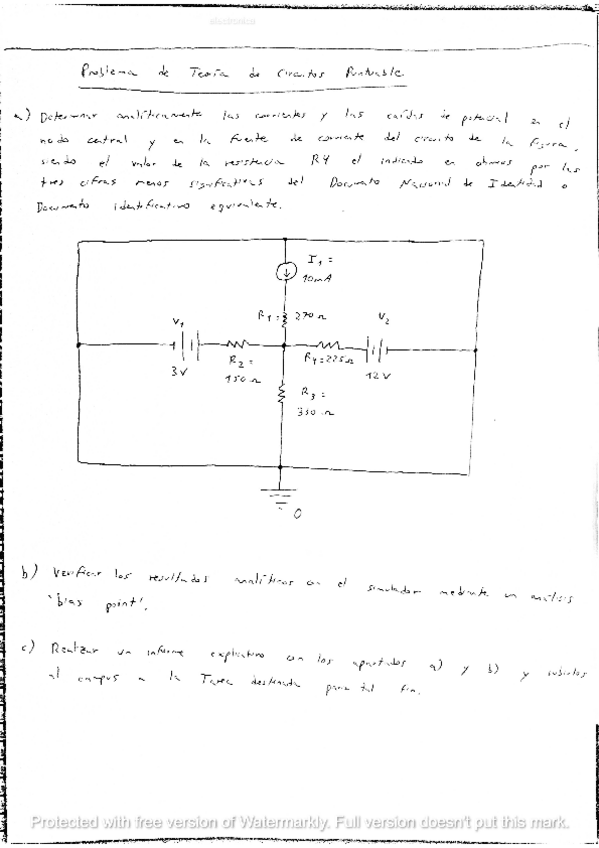 electrónica
Problema de Teoría de Circuitos Puntuable
a) Determinar analíticamente las corrientes y las caídas de potencial en el
nodo central y en la fuente de corriente del circuito de la figura,
siendo el valor de la resistencia R4 el indicado en ohmios por las
tres cifras menos significativas del Documento Nacional de Identidad o
Documento identificativo equivalente.
I1 =
10mA
R1 = 270 Ω
V1
V2
R2 =
150 Ω
R4=225Ω
3V
12V
R3 =
330 Ω
0
b) Verificar los resultados analíticos con el simulador mediante un análisis
'bias point'.
c) Realizar un informe explicativo con los apartados a) y b) y subirlos
al campus a la Tarea destinada para tal fin.
Protected with free version of Watermarkly. Full version doesn't put this mark.